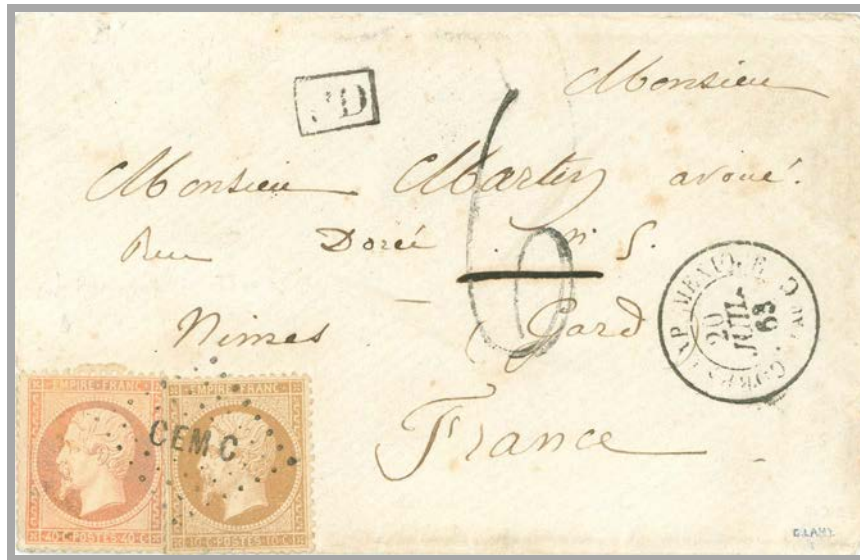 Monsieur
PD
Monsieur Martin avoué.
Rue Dorée n° 5.
Nimes Gard
France
6
MEXIQUE
20
JUIL.
63
EMPIRE FRANC
40·C·POSTES·40·C
EMPIRE FRANC
10·C·POSTES·10·C
CEMC